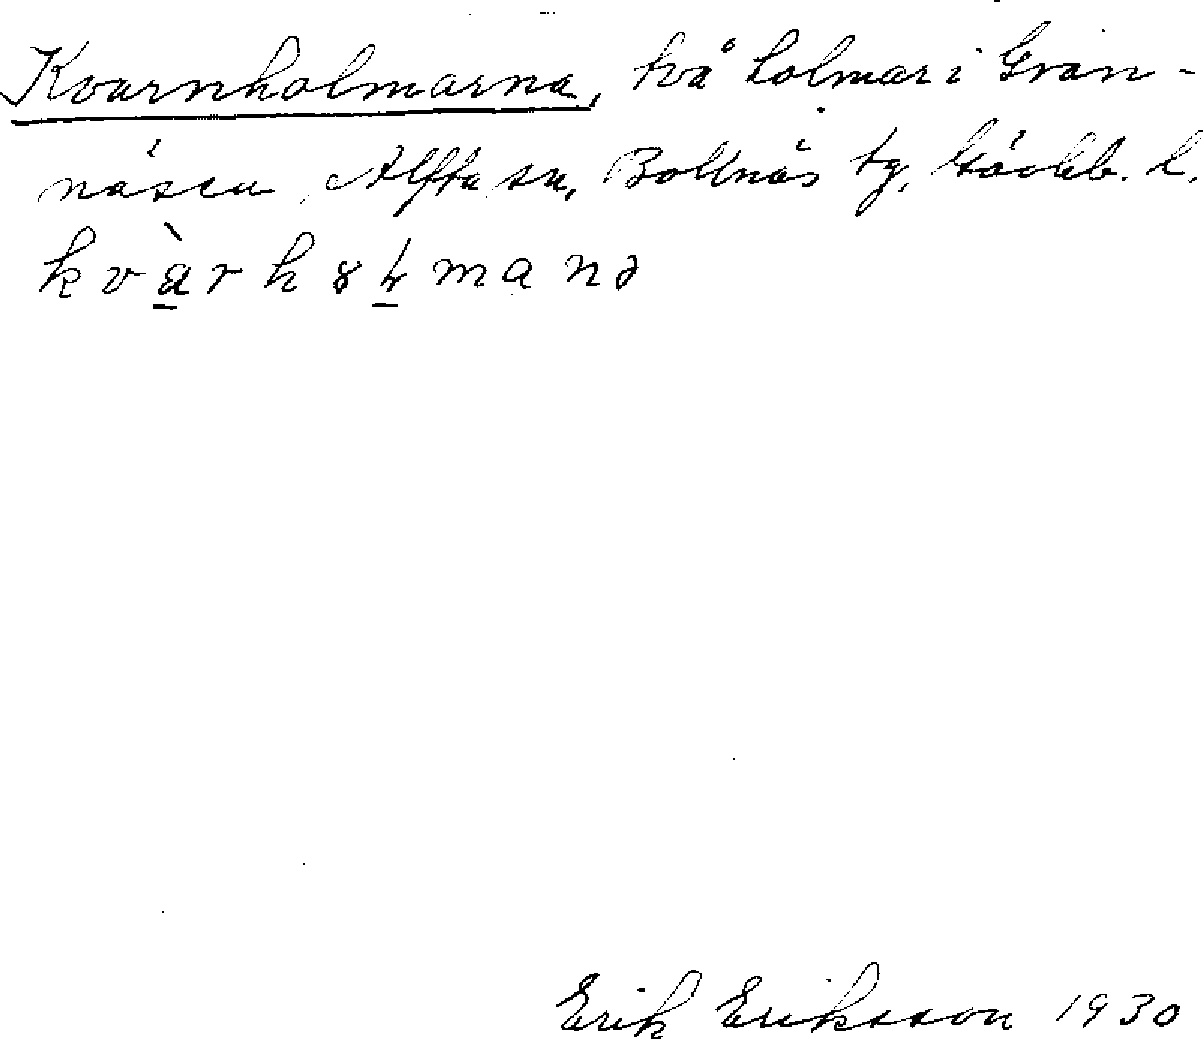 Kvarnholmarna, två holmar i Gran-
nåsen, Alfta sn, Bollnäs tg, Gävleb. l.
kvàrhȣɫmanə
Erik Eriksson 1930